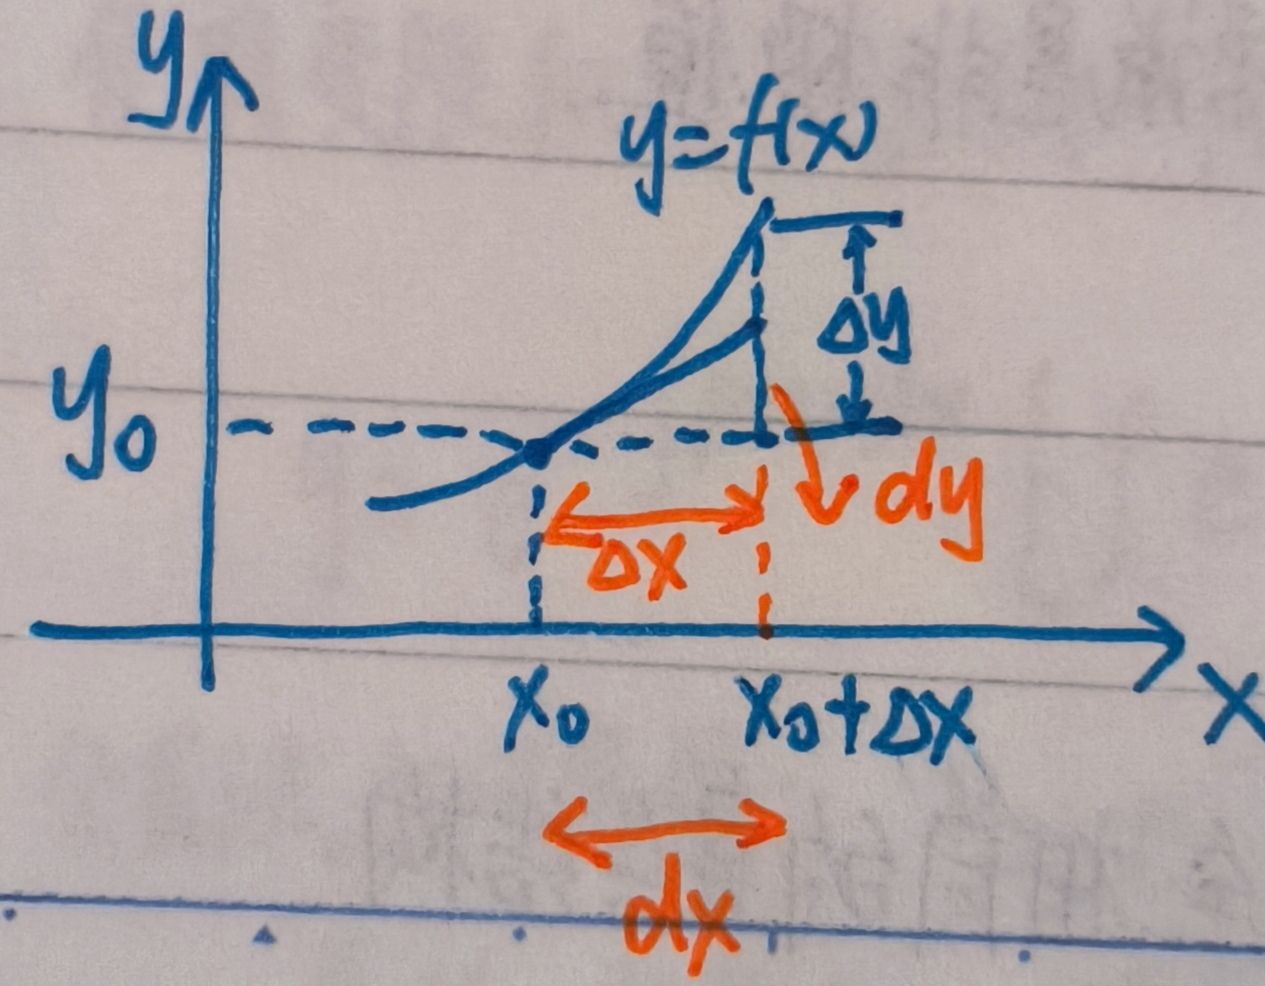 y
y=f(x)
Δy
y₀
dy
Δx
x₀
x₀+Δx
x
dx